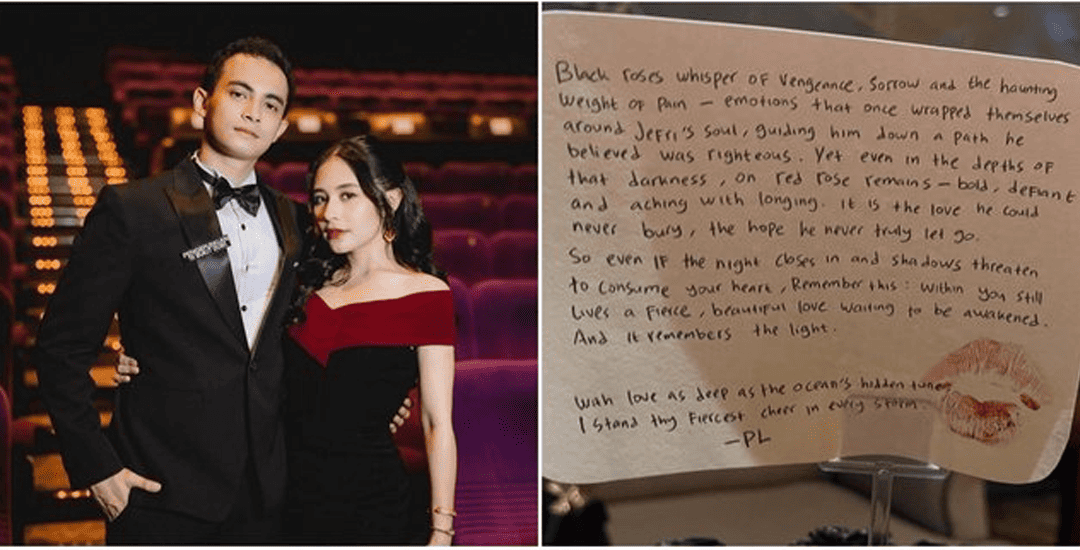 Black roses whisper of vengeance, sorrow and the haunting
weight of pain – emotions that once wrapped themselves
around Jefri's soul, guiding him down a path he
believed was righteous. Yet even in the depths of
that darkness, on red rose remains – bold, defiant
and aching with longing. it is the love he could
never bury, the hope he never truly let go.
So even if the night closes in and shadows threaten
to consume your heart, Remember this: within you still
lives a fierce, beautiful love waiting to be awakened.
And it remembers the light.
with love as deep as the ocean's hidden tune
I stand thy fiercest cheer in every storm.
—PL